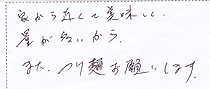 家から近くて美味しく
量が多いから。
また、つけ麺お願いします。